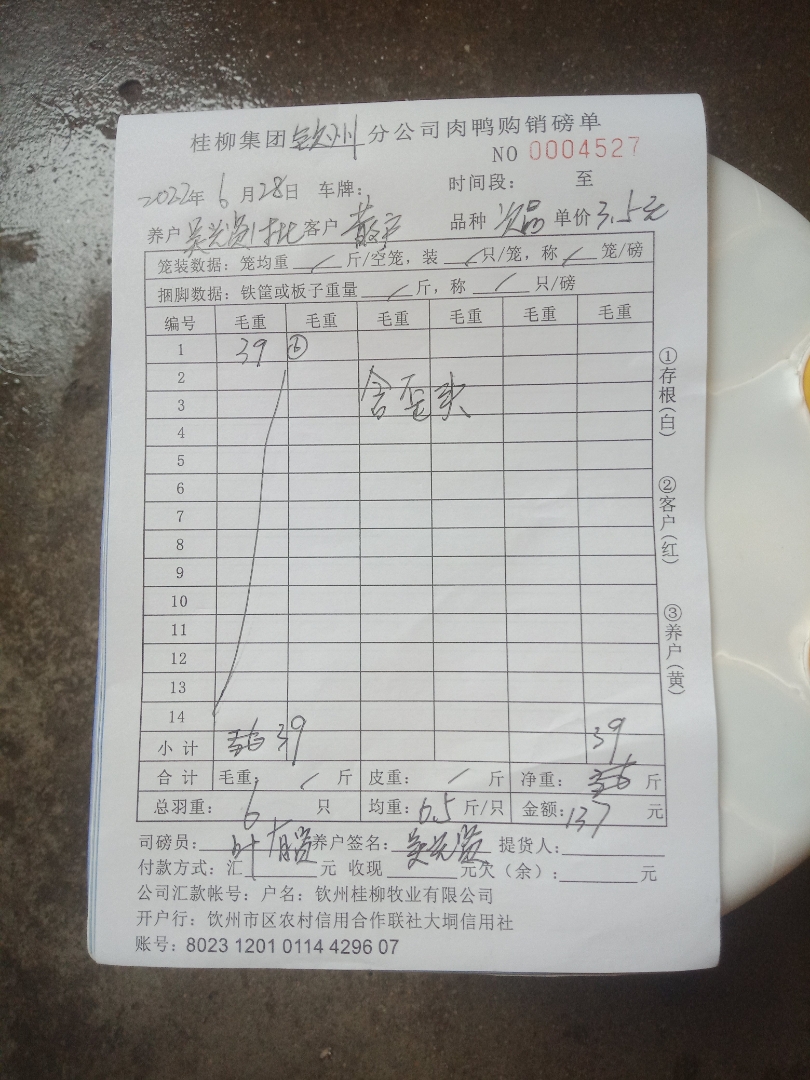 桂柳集团钦州分公司肉鸭购销磅单
NO 0004527
2022年6月28日 车牌: 时间段: 至
养户 客户散户 品种次品 单价3.5元
笼装数据:笼均重 / 斤/空笼,装 / 只/笼,称 / 笼/磅
捆脚数据:铁筐或板子重量 / 斤,称 / 只/磅
编号 毛重 毛重 毛重 毛重 毛重 毛重
1 39 ⑥
2
3 含歪头
4
5
6
7
8
9
10
11
12
13
14
小计 39 39
合计 毛重: / 斤 皮重: / 斤 净重: 斤
总羽重: 6 只 均重: 6.5 斤/只 金额: 137 元
司磅员: 养户签名: 提货人:
付款方式:汇 元 收现 元欠(余): 元
公司汇款帐号:户名:钦州桂柳牧业有限公司
开户行:钦州市区农村信用合作联社大垌信用社
账号:8023 1201 0114 4296 07
①存根(白)
②客户(红)
③养户(黄)